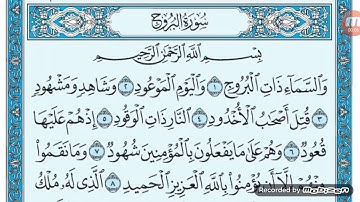 سُورَةُ الْبُرُوجِ
بِسْمِ اللَّهِ الرَّحْمَٰنِ الرَّحِيمِ
وَالسَّمَاءِ ذَاتِ الْبُرُوجِ ١ وَالْيَوْمِ الْمَوْعُودِ ٢ وَشَاهِدٍ وَمَشْهُودٍ
٣ قُتِلَ أَصْحَابُ الْأُخْدُودِ ٤ النَّارِ ذَاتِ الْوَقُودِ ٥ إِذْ هُمْ عَلَيْهَا
قُعُودٌ ٦ وَهُمْ عَلَىٰ مَا يَفْعَلُونَ بِالْمُؤْمِنِينَ شُهُودٌ ٧ وَمَا نَقَمُوا
مِنْهُمْ إِلَّا أَنْ يُؤْمِنُوا بِاللَّهِ الْعَزِيزِ الْحَمِيدِ ٨ الَّذِي لَهُ مُلْكُ
Recorded by
Mobizen